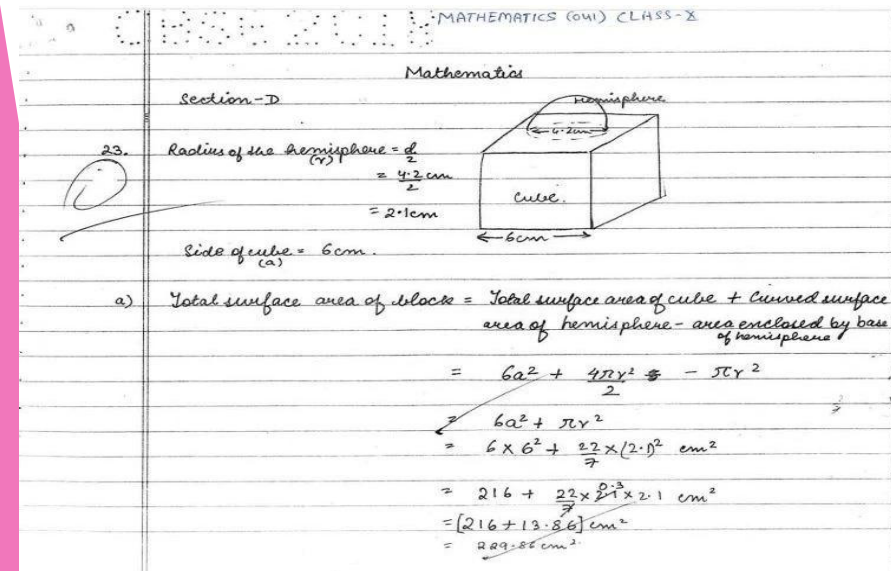 CBSE 2018
MATHEMATICS (041) CLASS-X
Mathematics
Section-D
Hemisphere
4.2cm
23. Radius of the hemisphere = d/2
(r)
= 4.2/2 cm
= 2.1cm
Cube.
6cm
Side of cube = 6cm.
(a)
a) Total surface area of block = Total surface area of cube + Curved surface
area of hemisphere - area enclosed by base
of hemisphere
= 6a² + 4πr²/2 - πr²
= 6a² + πr²
= 6 x 6² + 22/7 x (2.1)² cm²
= 216 + 22/7 x 2.1 x 2.1 cm²
0.3
= [216 + 13.86] cm²
= 229.86 cm².